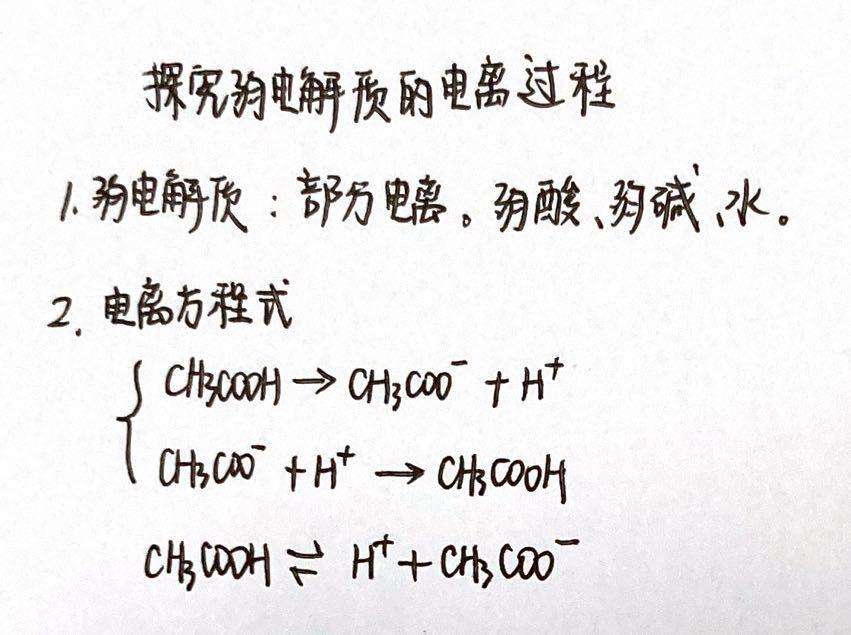 探究弱电解质的电离过程
1. 弱电解质：部分电离。弱酸、弱碱、水。
2. 电离方程式
CH₃COOH → CH₃COO⁻ + H⁺
CH₃COO⁻ + H⁺ → CH₃COOH
CH₃COOH ⇌ H⁺ + CH₃COO⁻